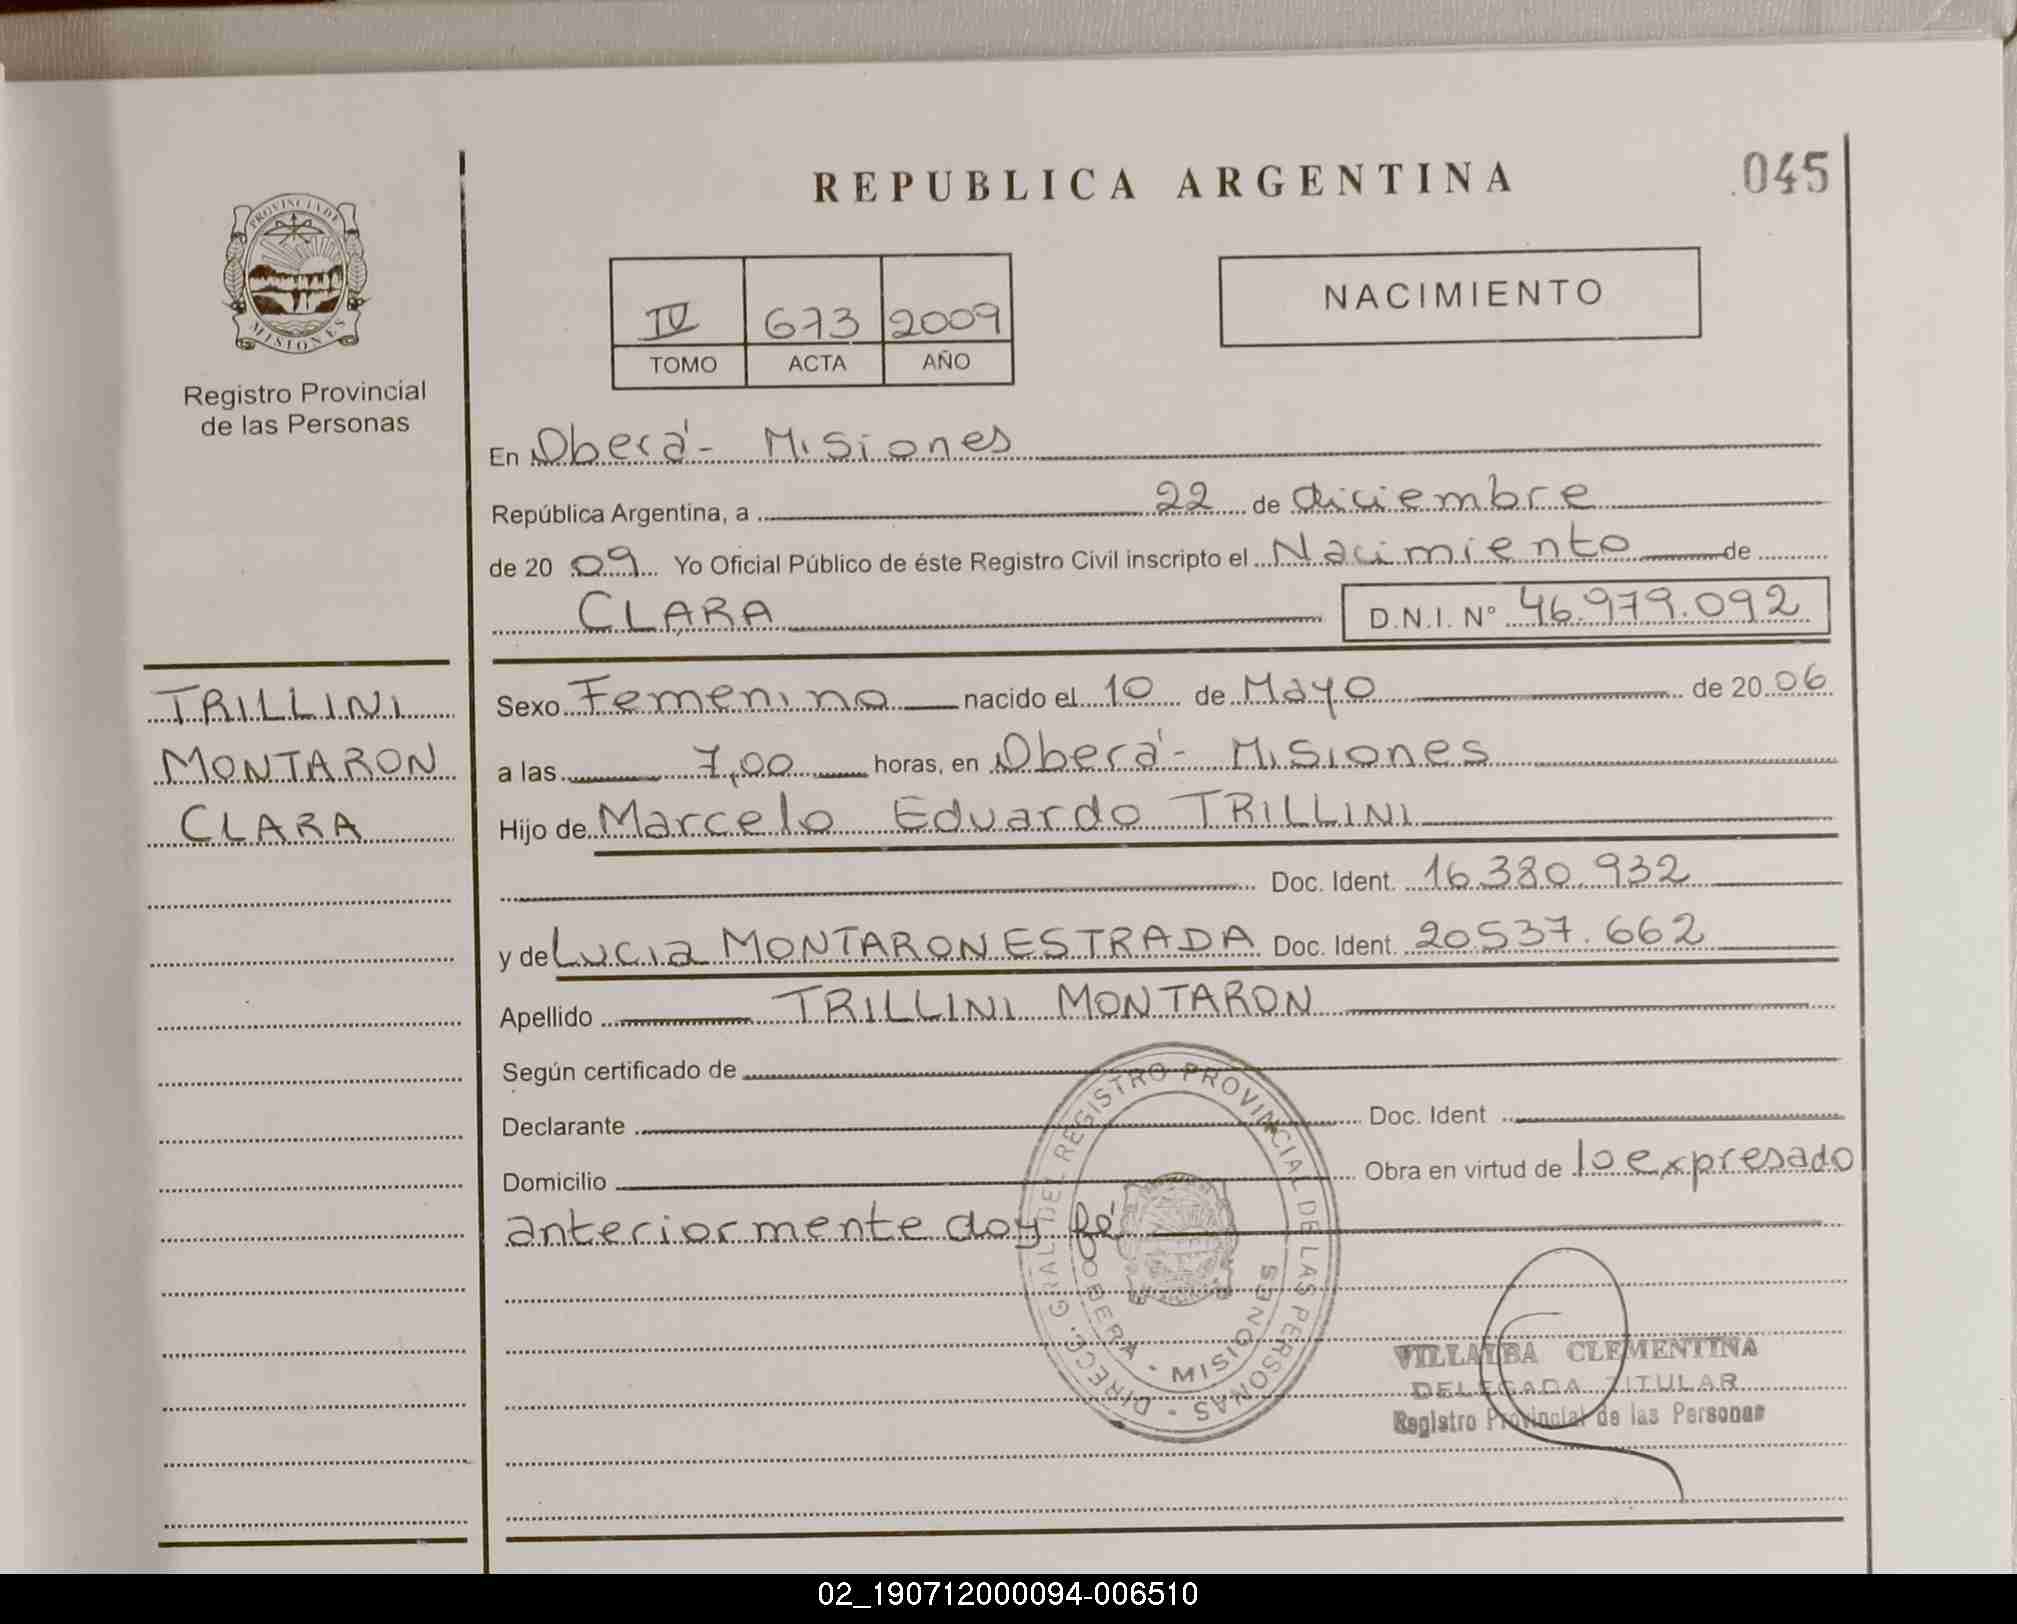 REPUBLICA ARGENTINA
045
PROVINCIA DE
MISIONES
Registro Provincial
de las Personas
IV 673 2009
TOMO ACTA AÑO
NACIMIENTO
En Oberá - Misiones
República Argentina, a 22 de diciembre
de 20 09 Yo Oficial Público de éste Registro Civil inscripto el Nacimiento de
CLARA D.N.I. N° 46.979.092
TRILLINI
MONTARON
CLARA
Sexo Femenino nacido el 10 de Mayo de 20 06
a las 7,00 horas, en Oberá - Misiones
Hijo de Marcelo Eduardo TRILLINI
Doc. Ident. 16.380.932
y de Lucia MONTARON ESTRADA Doc. Ident. 20.537.662
Apellido TRILLINI MONTARON
Según certificado de
Declarante Doc. Ident
Domicilio Obra en virtud de lo expresado
anteriormente doy fé
DIRECC. GRAL DEL REGISTRO PROVINCIAL DE LAS PERSONAS -
OBERA - MISIONES
VILLALBA CLEMENTINA
DELEGADA TITULAR
Registro Provincial de las Personas
02_190712000094-006510